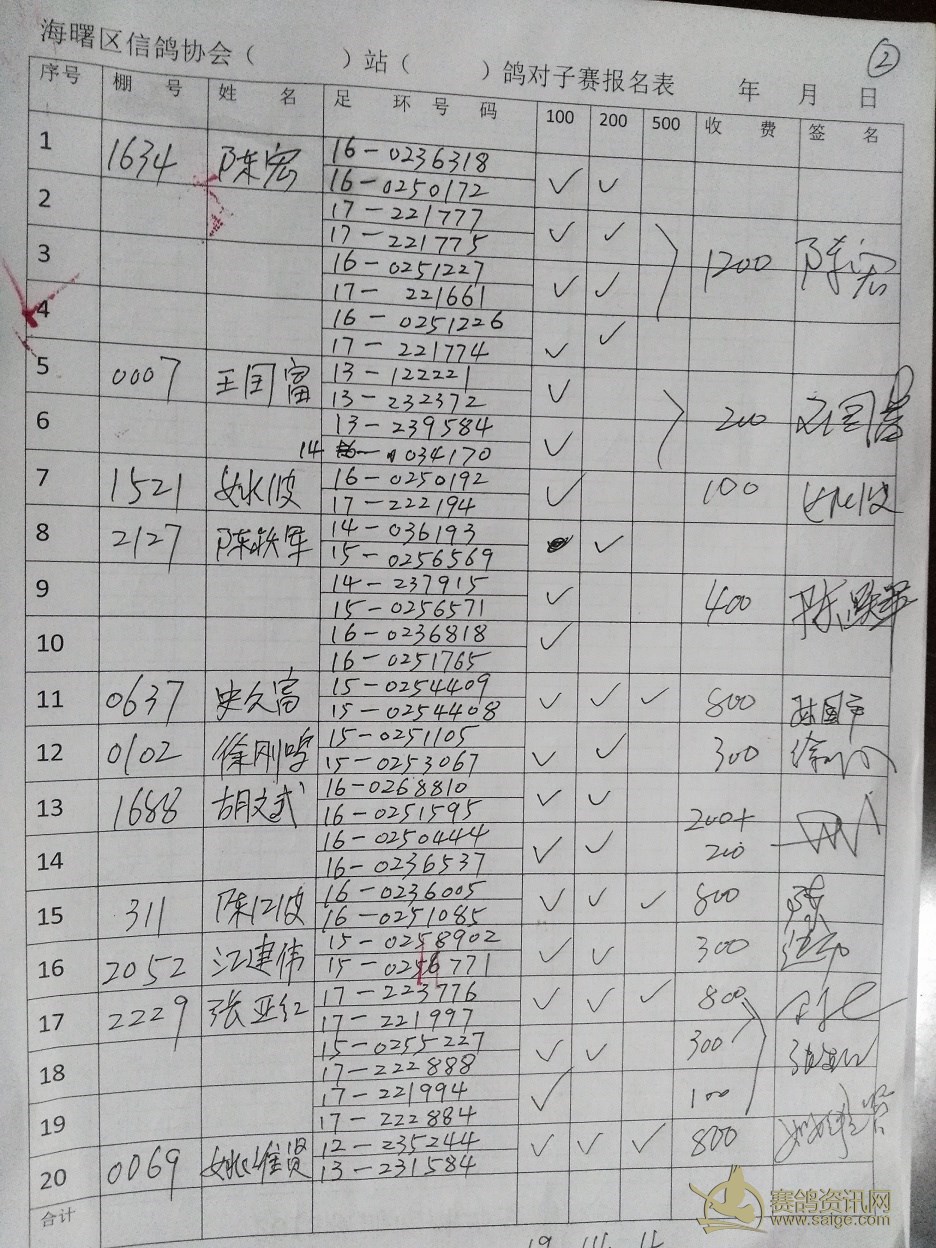 ②
海曙区信鸽协会（ ）站（ ）鸽对子赛报名表 年 月 日
序号 棚 号 姓 名 足 环 号 码 100 200 500 收 费 签 名
1 1634 陈宏 16-0236318
16-0250172 ✓ ✓
2 17-221777
17-221775 ✓ ✓
3 16-0251227 1200 陈宏
17-221661 ✓ ✓
4 16-0251226
17-221774 ✓ ✓
5 0007 王国富 13-122221
13-232372 ✓
6 13-239584 200
14 034170 ✓
7 1521 姚波 16-0250192
17-222194 ✓ 100
8 2127 陈铁军 14-036193
15-0256569 ✓
9 14-237915
15-0256571 ✓ 400 陈铁军
10 16-0236818
16-0251765 ✓
11 0637 史久富 15-0254409
15-0254408 ✓ ✓ ✓ 800
12 0102 徐刚鸣 15-0251105
15-0253067 ✓ ✓ 300
13 1688 胡文武 16-0268810
16-0251595 ✓ ✓ 200+
14 16-0250444 200
16-0236537 ✓ ✓
15 311 陈仁波 16-0236005
16-0251085 ✓ ✓ ✓ 800
16 2052 江建伟 15-0258902
15-0256771 ✓ ✓ 300
17 2229 张亚红 17-223776
17-221997 ✓ ✓ ✓ 800
18 15-0255227
17-222888 ✓ ✓ 300
19 17-221994
17-222884 ✓ 100
20 0069 姚维贤 12-235244
13-231584 ✓ ✓ ✓ 800
合计
赛鸽资讯网
www.saige.com